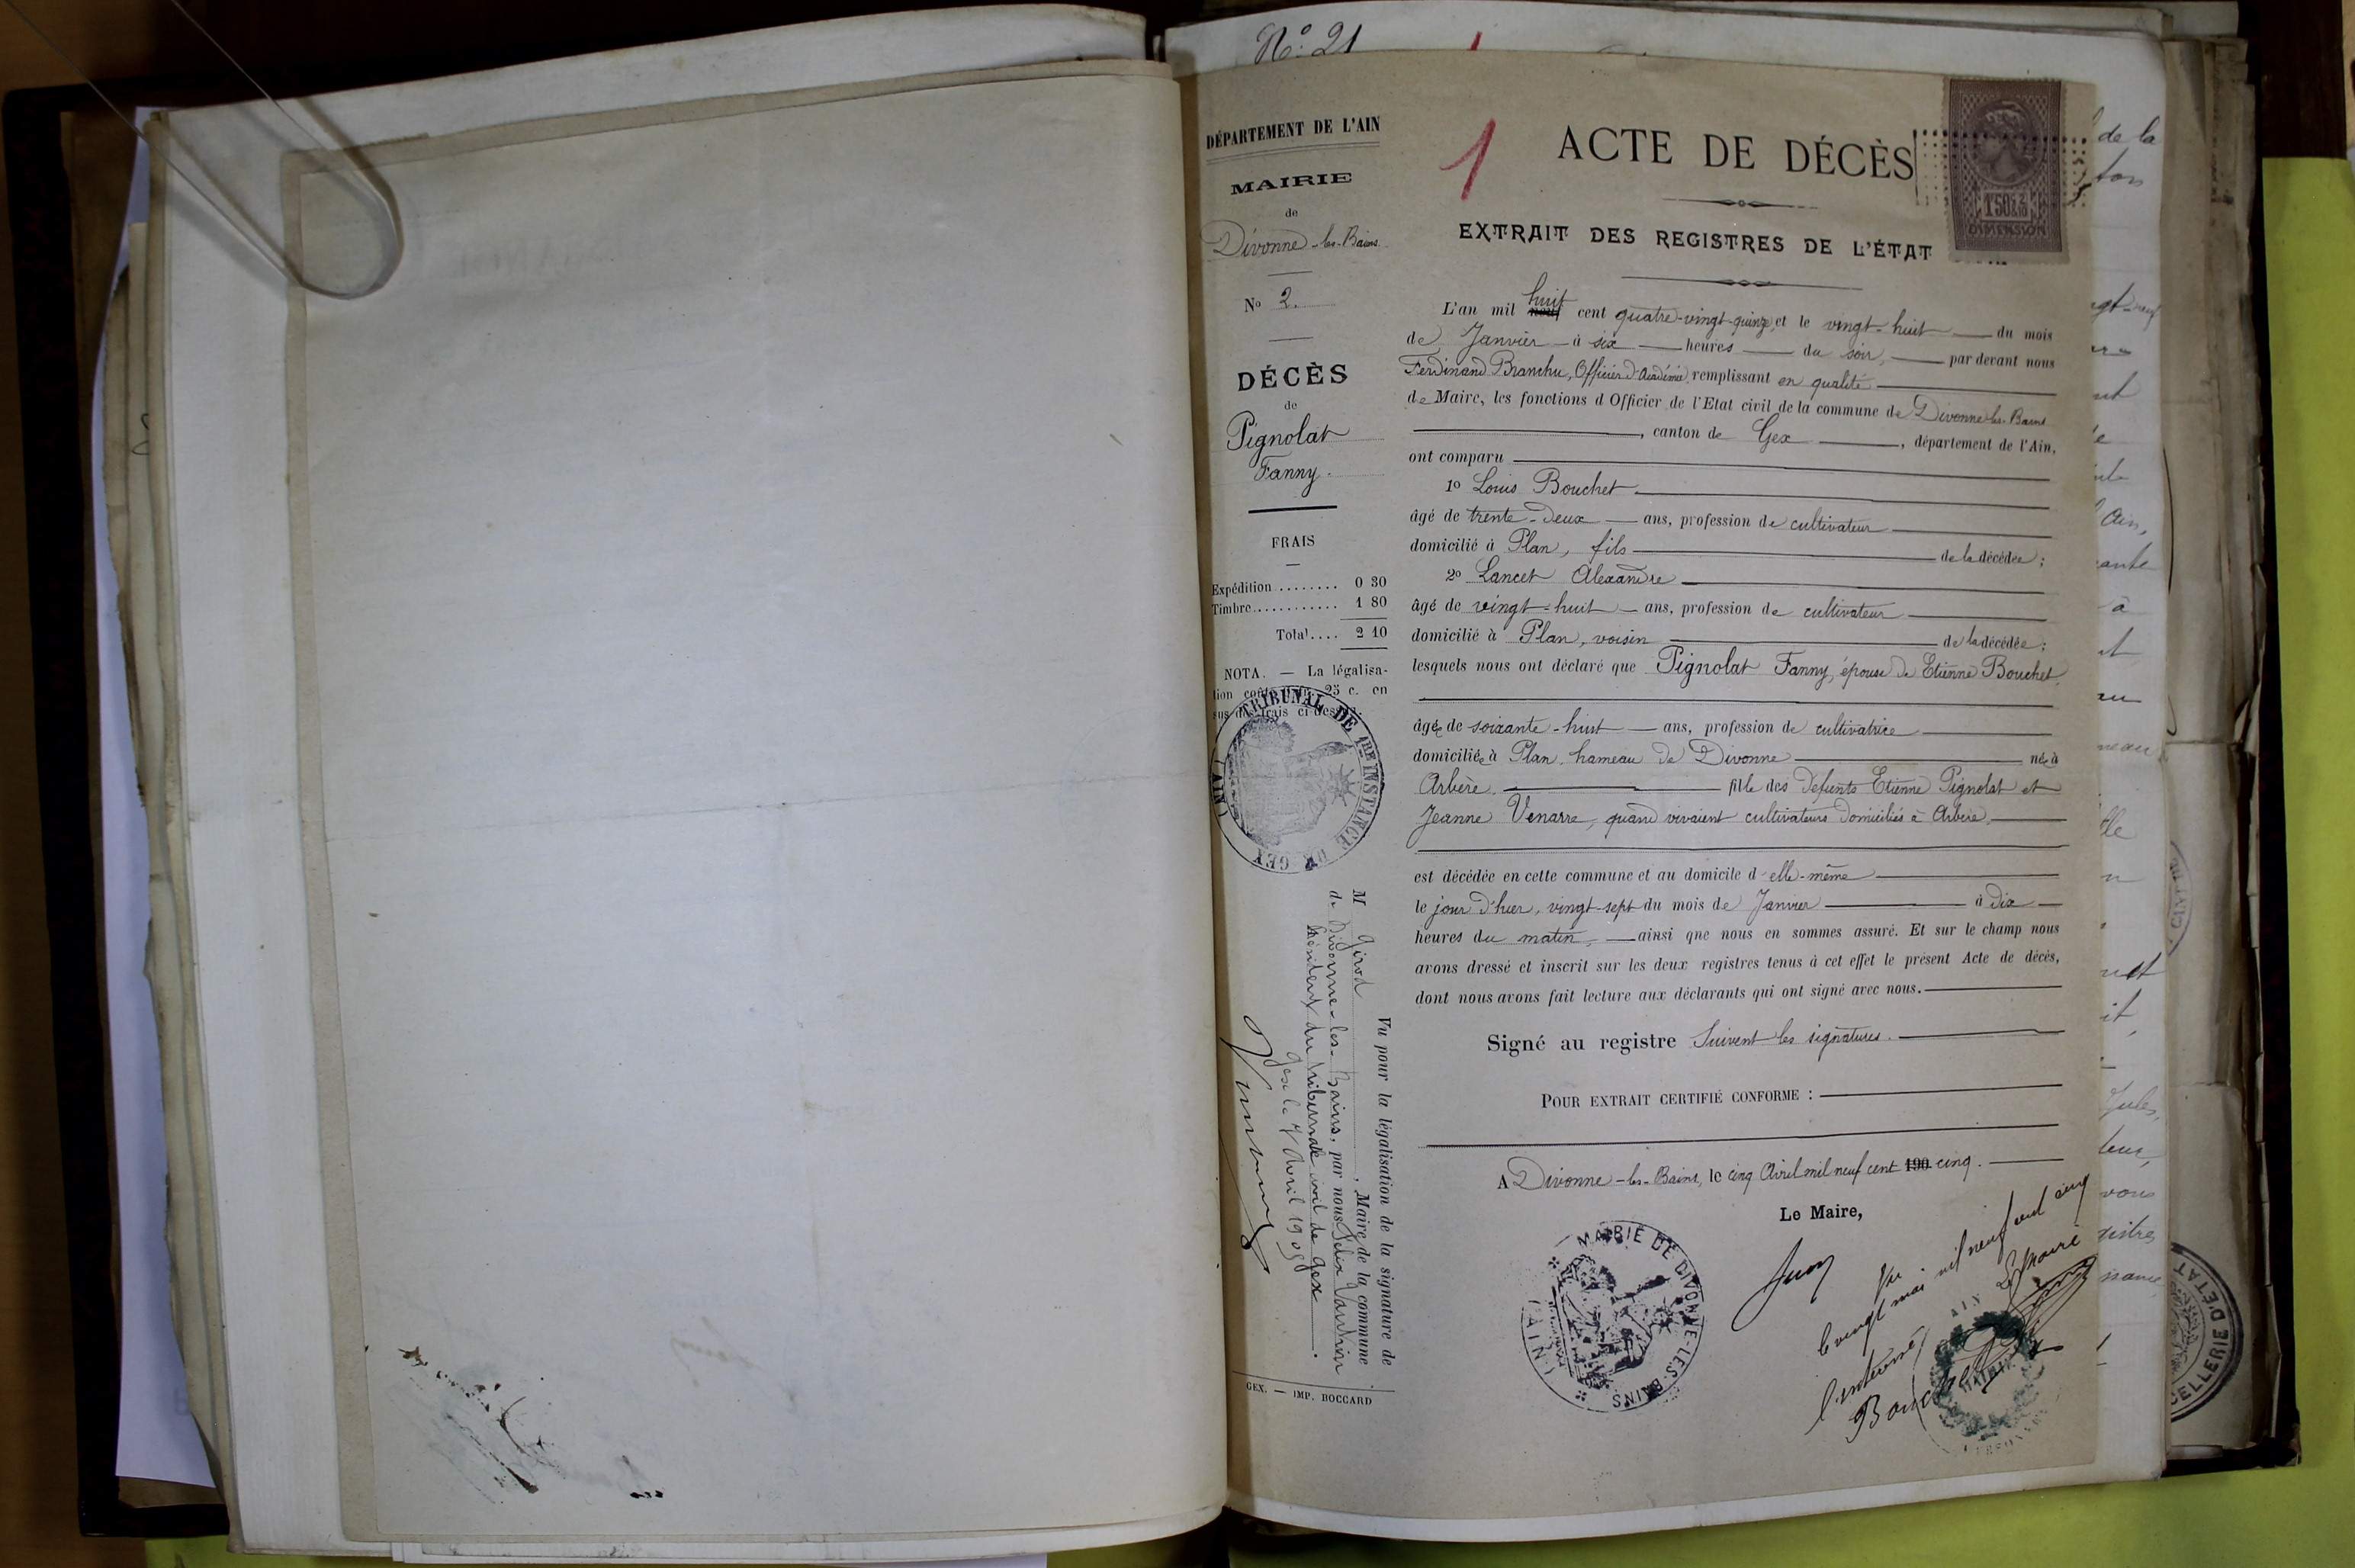 N° 21
DÉPARTEMENT DE L'AIN
MAIRIE
de
Divonne-les-Bains
N° 2.
DÉCÈS
de
Pignolat
Fanny.
FRAIS
Expédition ........ 0 30
Timbre ............ 1 80
Total .... 2 10
NOTA. — La légalisa-
tion coûte 25 c. en
sus des frais ci-dessus.
TRIBUNAL DE 1RE INSTANCE DE GEX (AIN)
Vu pour la légalisation de la signature de
M Girod, Maire de la commune
de Divonne-les-Bains, par nous Félix
Président du tribunal civil de Gex.
Gex le 7 Avril 1905
GEX. — IMP. BOCCARD
1
ACTE DE DÉCÈS
1F50
DIMENSION
EXTRAIT DES REGISTRES DE L'ÉTAT
L'an mil huit neuf cent quatre-vingt-quinze, et le vingt-huit du mois
de Janvier à six heures du soir, par devant nous
Ferdinand Branchu, Officier d'Académie, remplissant en qualité
de Maire, les fonctions d'Officier de l'Etat civil de la commune de Divonne-les-Bains
, canton de Gex, département de l'Ain,
ont comparu
1° Louis Bouchet
âgé de trente-deux ans, profession de cultivateur
domicilié à Plan, fils de la décédée ;
2° Lancet Alexandre
âgé de vingt-huit ans, profession de cultivateur
domicilié à Plan, voisin de la décédée ;
lesquels nous ont déclaré que Pignolat Fanny, épouse de Etienne Bouchet,
âgée de soixante-huit ans, profession de cultivatrice
domiciliée à Plan, hameau de Divonne née à
Arbère. fille des défunts Etienne Pignolat et
Jeanne Venarre, quand vivaient cultivateurs domiciliés à Arbère,
est décédée en cette commune et au domicile d'elle-même
le jour d'hier, vingt-sept du mois de Janvier à dix
heures du matin, ainsi que nous en sommes assuré. Et sur le champ nous
avons dressé et inscrit sur les deux registres tenus à cet effet le présent Acte de décès,
dont nous avons fait lecture aux déclarants qui ont signé avec nous.
Signé au registre Suivent les signatures.
POUR EXTRAIT CERTIFIÉ CONFORME :
A Divonne-les-Bains, le cinq Avril mil neuf cent 190 cinq.
Le Maire,
MAIRIE DE DIVONNE-LES-BAINS (AIN)
Vu
le vingt mai mil neuf cent cinq
Le Maire
l'intéressé
Bouchet
AIN
MAIRIE
de la
Ain,
à
Jules,
vous
CELLERIE D'ÉTAT